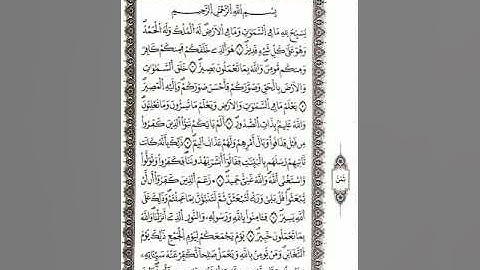 بِسْمِ اللَّهِ الرَّحْمَٰنِ الرَّحِيمِ
يُسَبِّحُ لِلهِ مَا فِي السَّمَٰوَٰتِ وَمَا فِي الْأَرْضِ لَهُ الْمُلْكُ وَلَهُ الْحَمْدُ
وَهُوَ عَلَىٰ كُلِّ شَيْءٍ قَدِيرٌ ۝ هُوَ الَّذِي خَلَقَكُمْ فَمِنكُمْ كَافِرٌ
وَمِنكُم مُّومِنٌ وَاللَّهُ بِمَا تَعْمَلُونَ بَصِيرٌ ۝ خَلَقَ السَّمَٰوَٰتِ
وَالْأَرْضَ بِالْحَقِّ وَصَوَّرَكُمْ فَأَحْسَنَ صُوَرَكُمْ وَإِلَيْهِ الْمَصِيرُ
۝ يَعْلَمُ مَا فِي السَّمَٰوَٰتِ وَالْأَرْضِ وَيَعْلَمُ مَا تُسِرُّونَ وَمَا تُعْلِنُونَ
وَاللَّهُ عَلِيمٌ بِذَاتِ الصُّدُورِ ۝ أَلَمْ يَاتِكُمْ نَبَؤُا الَّذِينَ كَفَرُوا
مِن قَبْلُ فَذَاقُوا وَبَالَ أَمْرِهِمْ وَلَهُمْ عَذَابٌ أَلِيمٌ ۝ ذَٰلِكَ بِأَنَّهُ كَانَت
تَّاتِيهِمْ رُسُلُهُم بِالْبَيِّنَٰتِ فَقَالُوا أَبَشَرٌ يَهْدُونَنَا فَكَفَرُوا وَتَوَلَّوا
وَّاسْتَغْنَى اللَّهُ وَاللَّهُ غَنِيٌّ حَمِيدٌ ۝ زَعَمَ الَّذِينَ كَفَرُوا أَن لَّن
يُبْعَثُوا قُلْ بَلَىٰ وَرَبِّي لَتُبْعَثُنَّ ثُمَّ لَتُنَبَّؤُنَّ بِمَا عَمِلْتُمْ وَذَٰلِكَ عَلَى
اللَّهِ يَسِيرٌ ۝ فَـَٔامِنُوا بِاللَّهِ وَرَسُولِهِ وَالنُّورِ الَّذِي أَنزَلْنَا وَاللَّهُ
بِمَا تَعْمَلُونَ خَبِيرٌ ۝ يَوْمَ يَجْمَعُكُمْ لِيَوْمِ الْجَمْعِ ذَٰلِكَ يَوْمُ
التَّغَابُنِ وَمَن يُومِن بِاللَّهِ وَيَعْمَلْ صَٰلِحًا نُّكَفِّرْ عَنْهُ سَيِّـَٔاتِهِ
ثمن